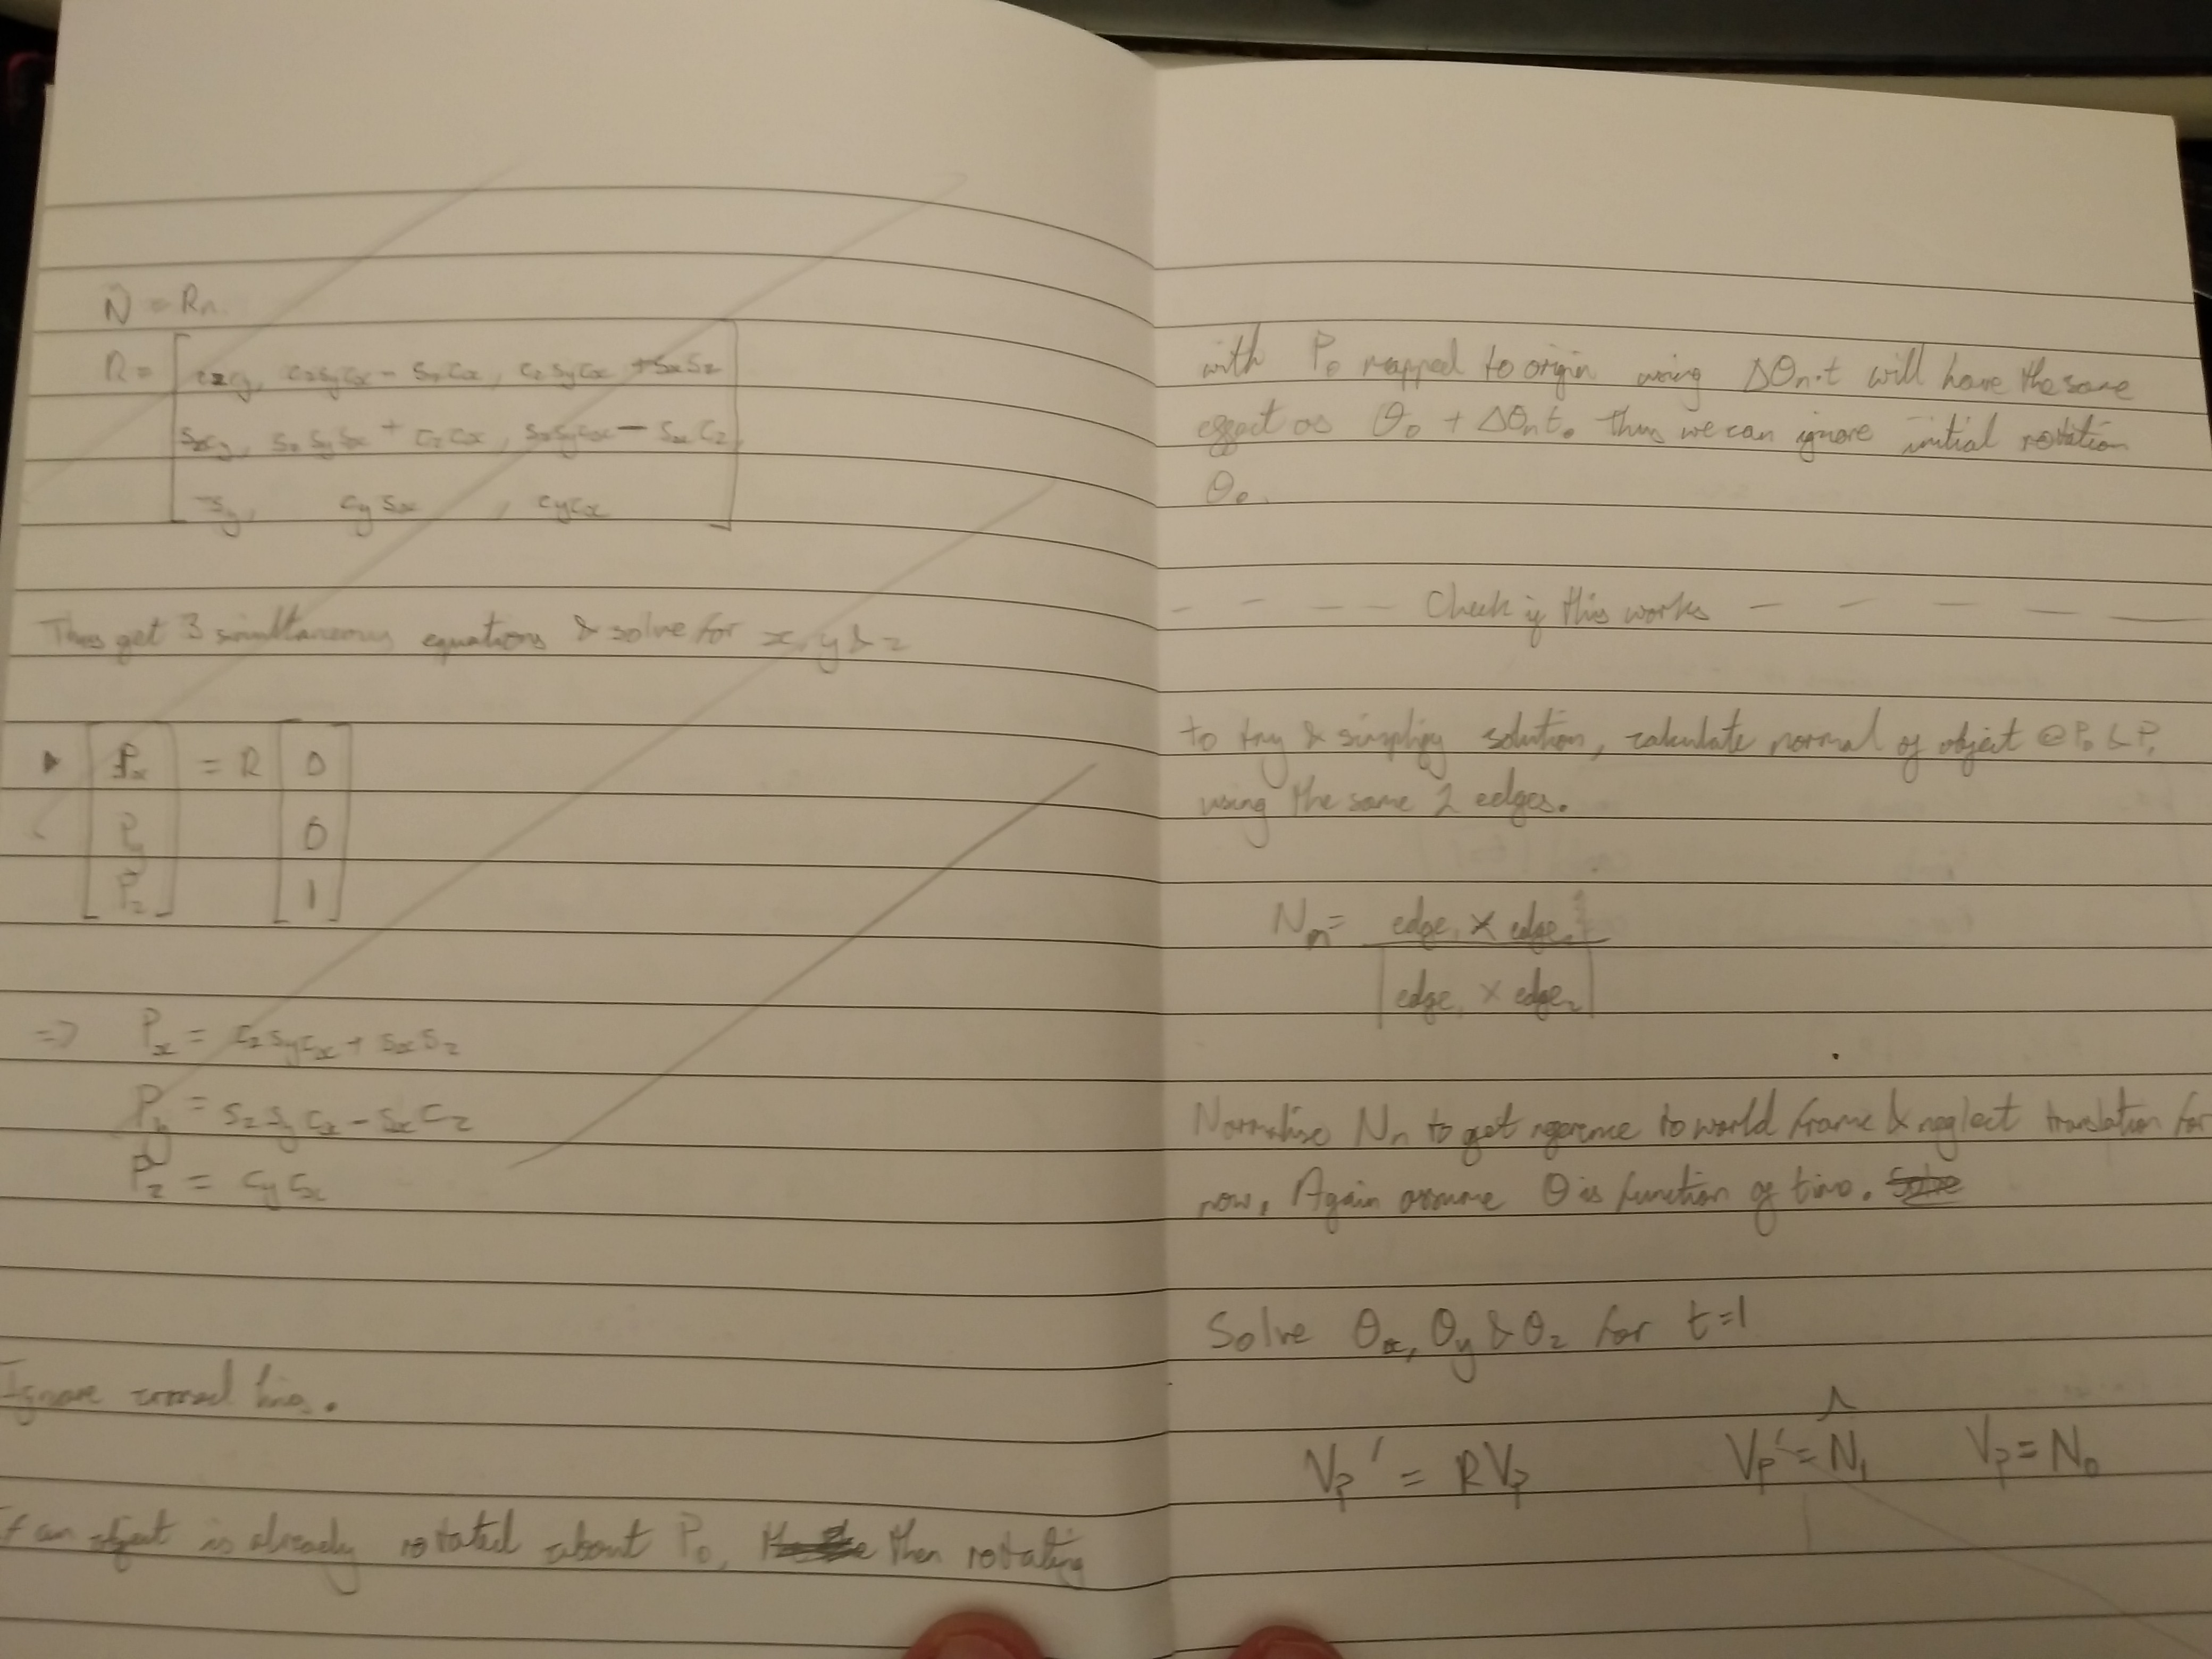 N = Rn.
R = [ czcy, czsycx - szcx, czsycx + sxsz
szcy, szsysx + czcx, szsycx - sxcz,
-sy, cysx, cycx ]
Thus get 3 simultaneous equations & solve for x, y & z
[ Px = R [ 0
Py 0
Pz ] 1 ]
=> Px = czsycx + sxsz
Py = szsycx - sxcz
Pz = cycx
Ignore crossed lines.
If an object is already rotated about P0, then rotating
with P0 mapped to origin using Δθn.t will have the same
effect as θ0 + Δθnt. Thus we can ignore initial rotation
θ0.
- - - - Check if this works - - - -
to try & simplify solution, calculate normal of object @ P0 & P1
using the same 2 edges.
Nn = edge1 × edge2
|edge1 × edge2|
Normalise Nn to get reference to world frame & neglect translation for
now. Again assume θ is function of time.
Solve θx, θy & θz for t=1
Vp' = RVp Vp' = N̂1 Vp = N0